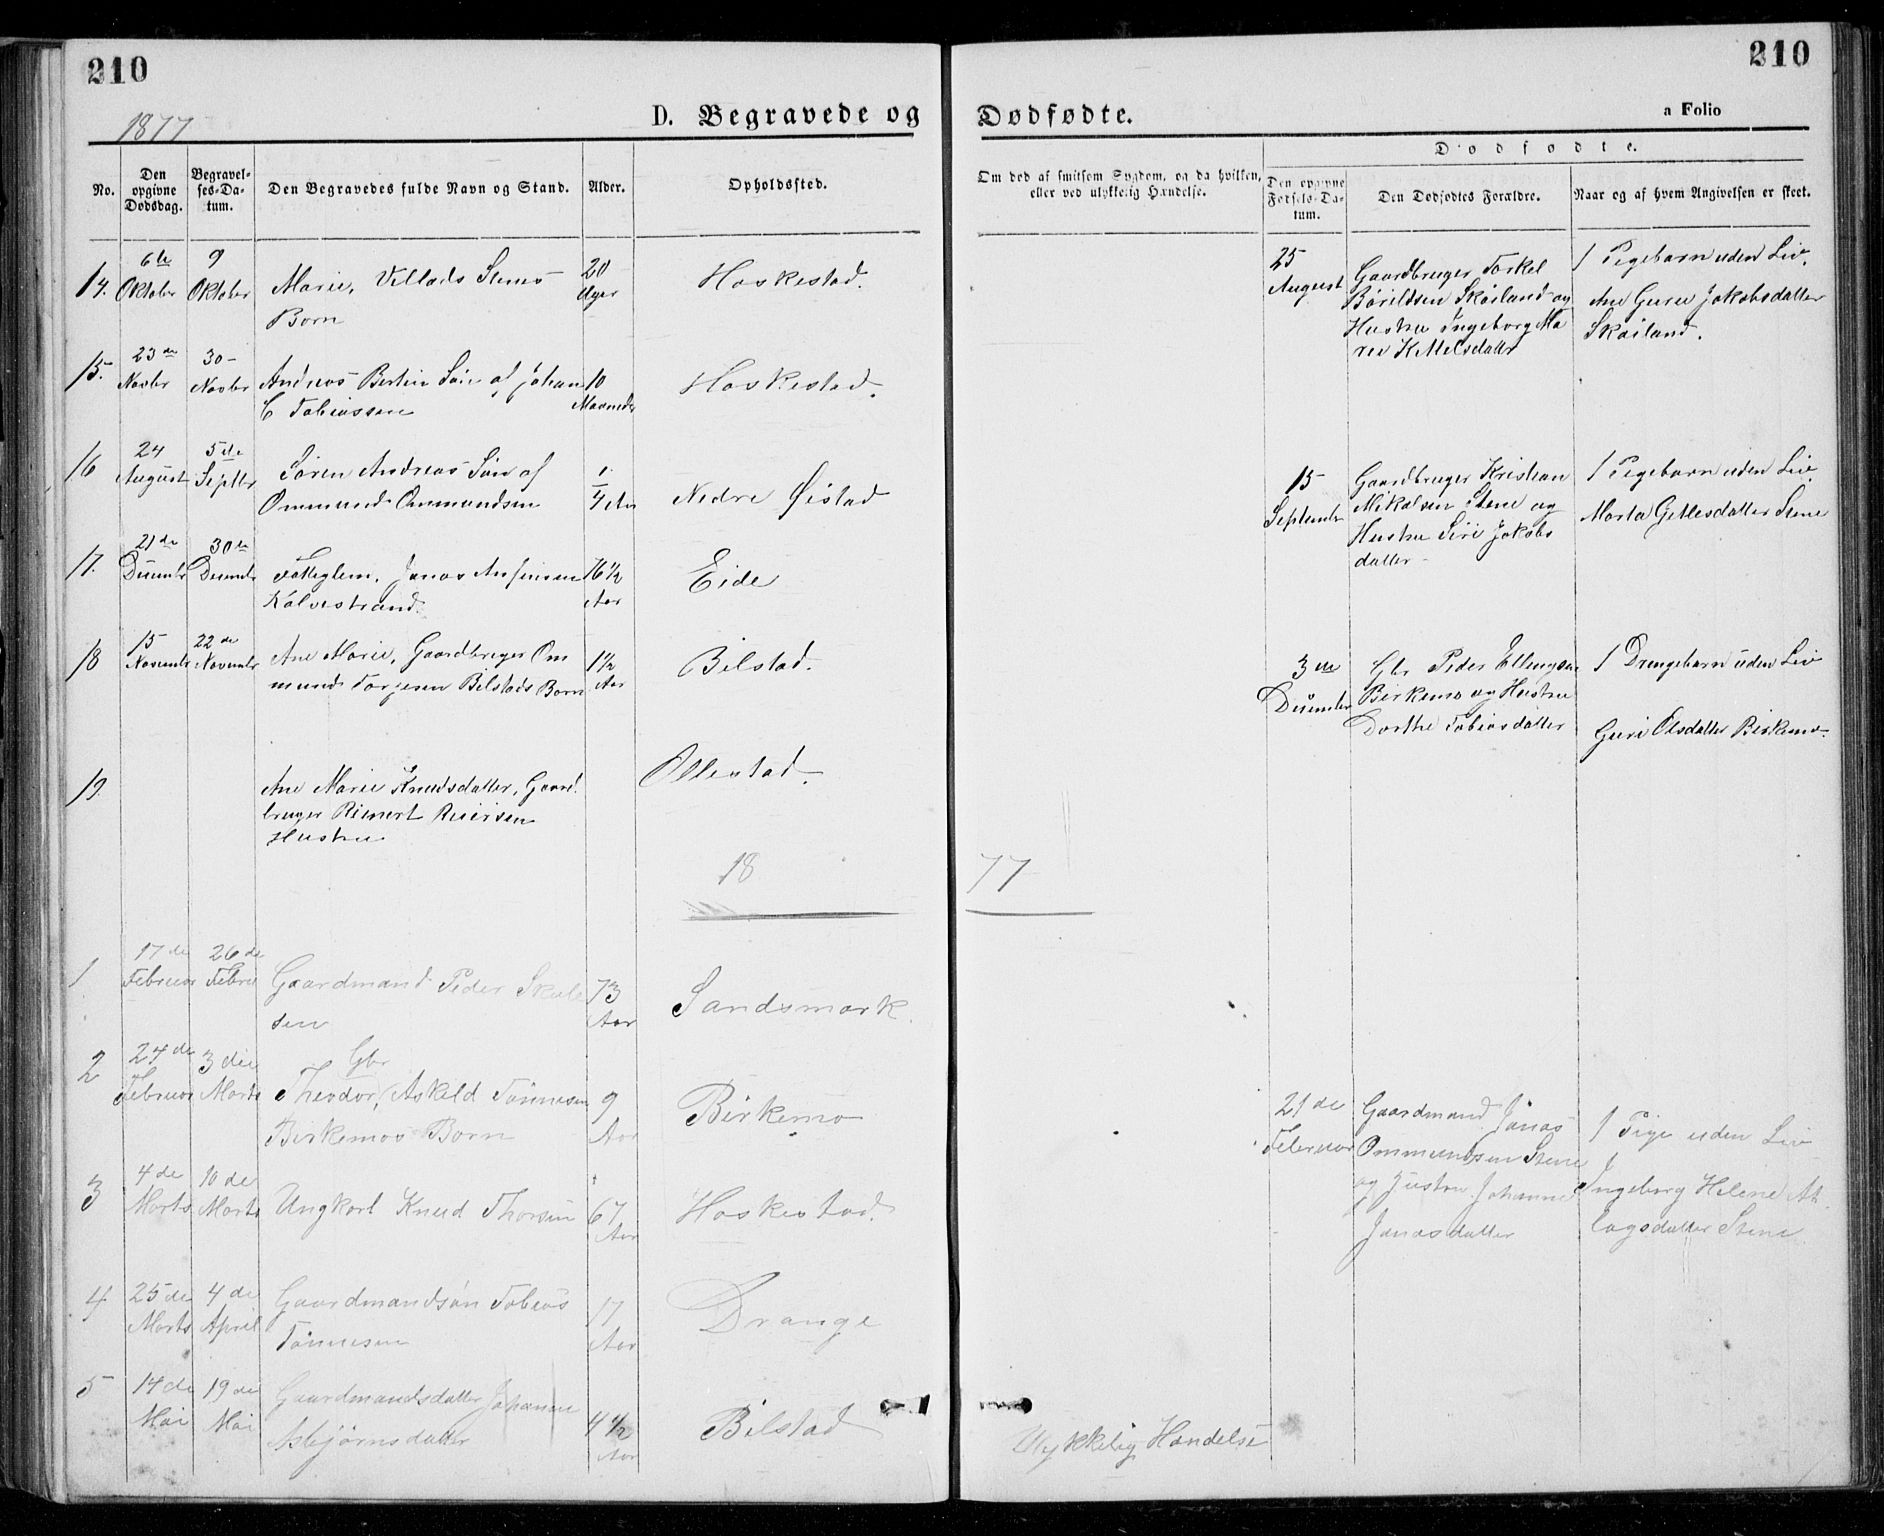 210
210
1877
D. Begravede og Dødfødte.
a Folio
No.
Den opgivne Dødsdag.
Begravel-ses-Da-tum.
Den Begravedes fulde Navn og Stand.
Alder.
Opholdssted.
Om død af smitsom Sygdom, og da hvilken,
eller ved ulykkelig Hændelse.
Dødfødte.
Den opgivne Fødsels-Da-tum.
Den Dødfødtes Forældre.
Naar og af hvem Angivelsen er skeet.
14. 6te Oktober 9 Oktober
Marie, Villads Stenes
Barn
20 Uger
Haskestad.
25 August
Gaardbruger Torkel
Bårildsen Skåiland og
Hustru Ingeborg Ma
rie Ketelsdatter
1 Pigebarn uden Liv.
Ane Guru Jakobsdatter
Skåiland.
15. 23de Novbr 30 Novbr
Andreas Bertin Søn af Johan
C Tobiassen
10 Maaneder
Haskestad.
16 24 August 5de Septbr
Sören Andreas Sön af
Ommund Ommundsen
1/4 Aar
Nedre Øistad
15 September
Gaardbruger Kristian
Mikalsen Stene og
Hustru Siri Jakobs
datter
1 Pigebarn uden Liv
Marta Gitlesdatter Stene
17. 21de Decembr 30te Decembr
Fattiglem, Jonas Ansjensen
Kålvestrand.
76 1/2 Aar
Eide
18 15 Novembr 22de Novembr
Ane Marie, Gaardbruger Om
mund Torgersen Bilstads Barn
1 1/2 Aar
Bilstad.
3die Decembr
Gbr Peder Ellingsen
Birkemo og Hustru
Dorthe Tobiasdatter
1 Drengebarn uden Liv
Guri Olsdatter Birkemo.
19.
Ane Marie Knudsdatter, Gaard.
bruger Reinert Reiersen
Hustru
Ollestad.
18 77
1 17de Februar 26de Febru
Gaardmand Peder Skule
sen
73 Aar
Sandsmark.
2 24de Februar 3die Marts
Gbr
Theodor, Askeld Tönnesen
Birkemos Barn
9 Aar
Birkemo
21de Februar
Gaardmand Jonas
Ommundsen Stene
og Hustru Johanne
Jonasdatter
1 Pige uden Liv
Ingeborg Helene At
lagsdatter Stene
3 4de Marts 10de Marts
Ungkarl Knud Thorsen
67 Aar
Haskestad.
4 25de Marts 4de April
Gaardmandsön Tobias
Tönnesen
17 Aar
Drange
5 14de Mai 19de Mai
Gaardmandsdatter Johanne
Asbjørnsdatter
4 1/2 Aar
Bilstad
Ulykkelig Hændelse